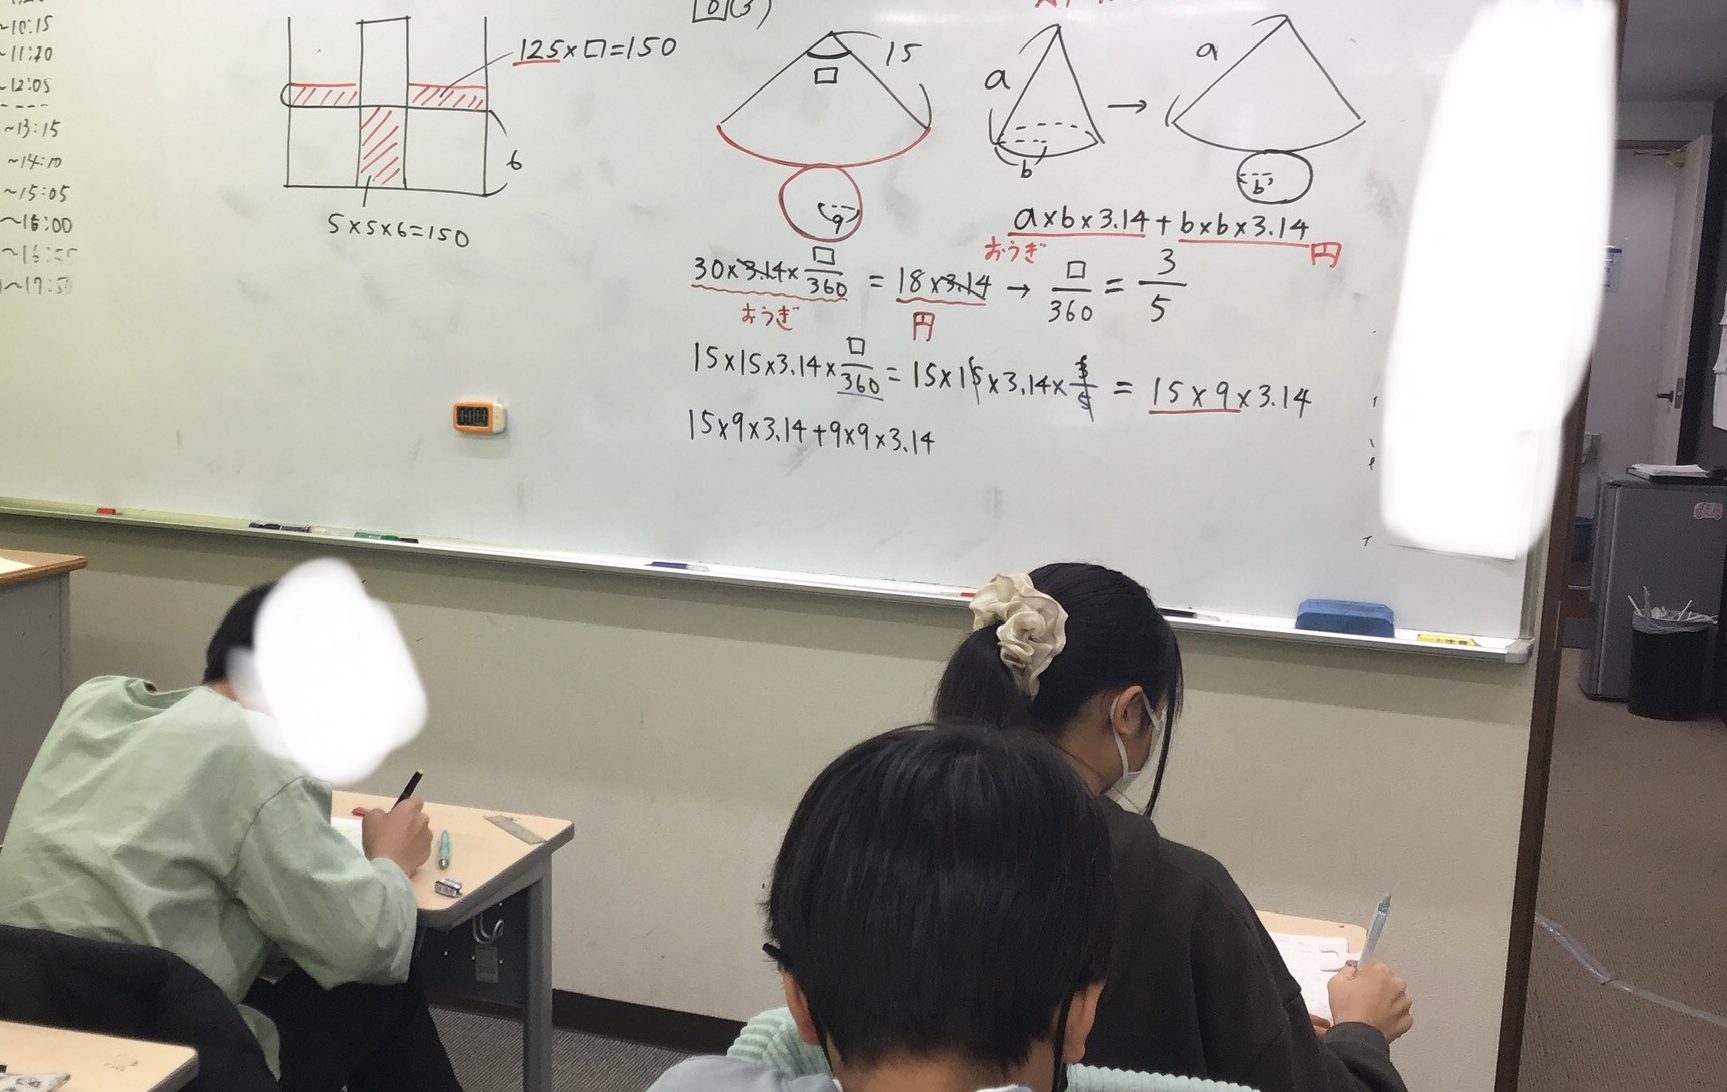 ~10:15
~11:20
~12:05
~13:15
~14:10
~15:05
~16:00
~17:50
125×□=150
6
5×5×6=150
(3)
15
□
9
a
b
a
b
a×b×3.14+b×b×3.14
おうぎ
円
30×3.14×□/360=18×3.14→□/360=3/5
おうぎ
円
15×15×3.14×□/360=15×15×3.14×3/5=15×9×3.14
15×9×3.14+9×9×3.14